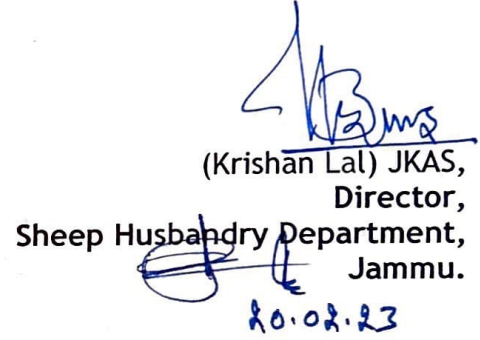 (Krishan Lal) JKAS,
Director,
Sheep Husbandry Department,
Jammu.
20.02.23